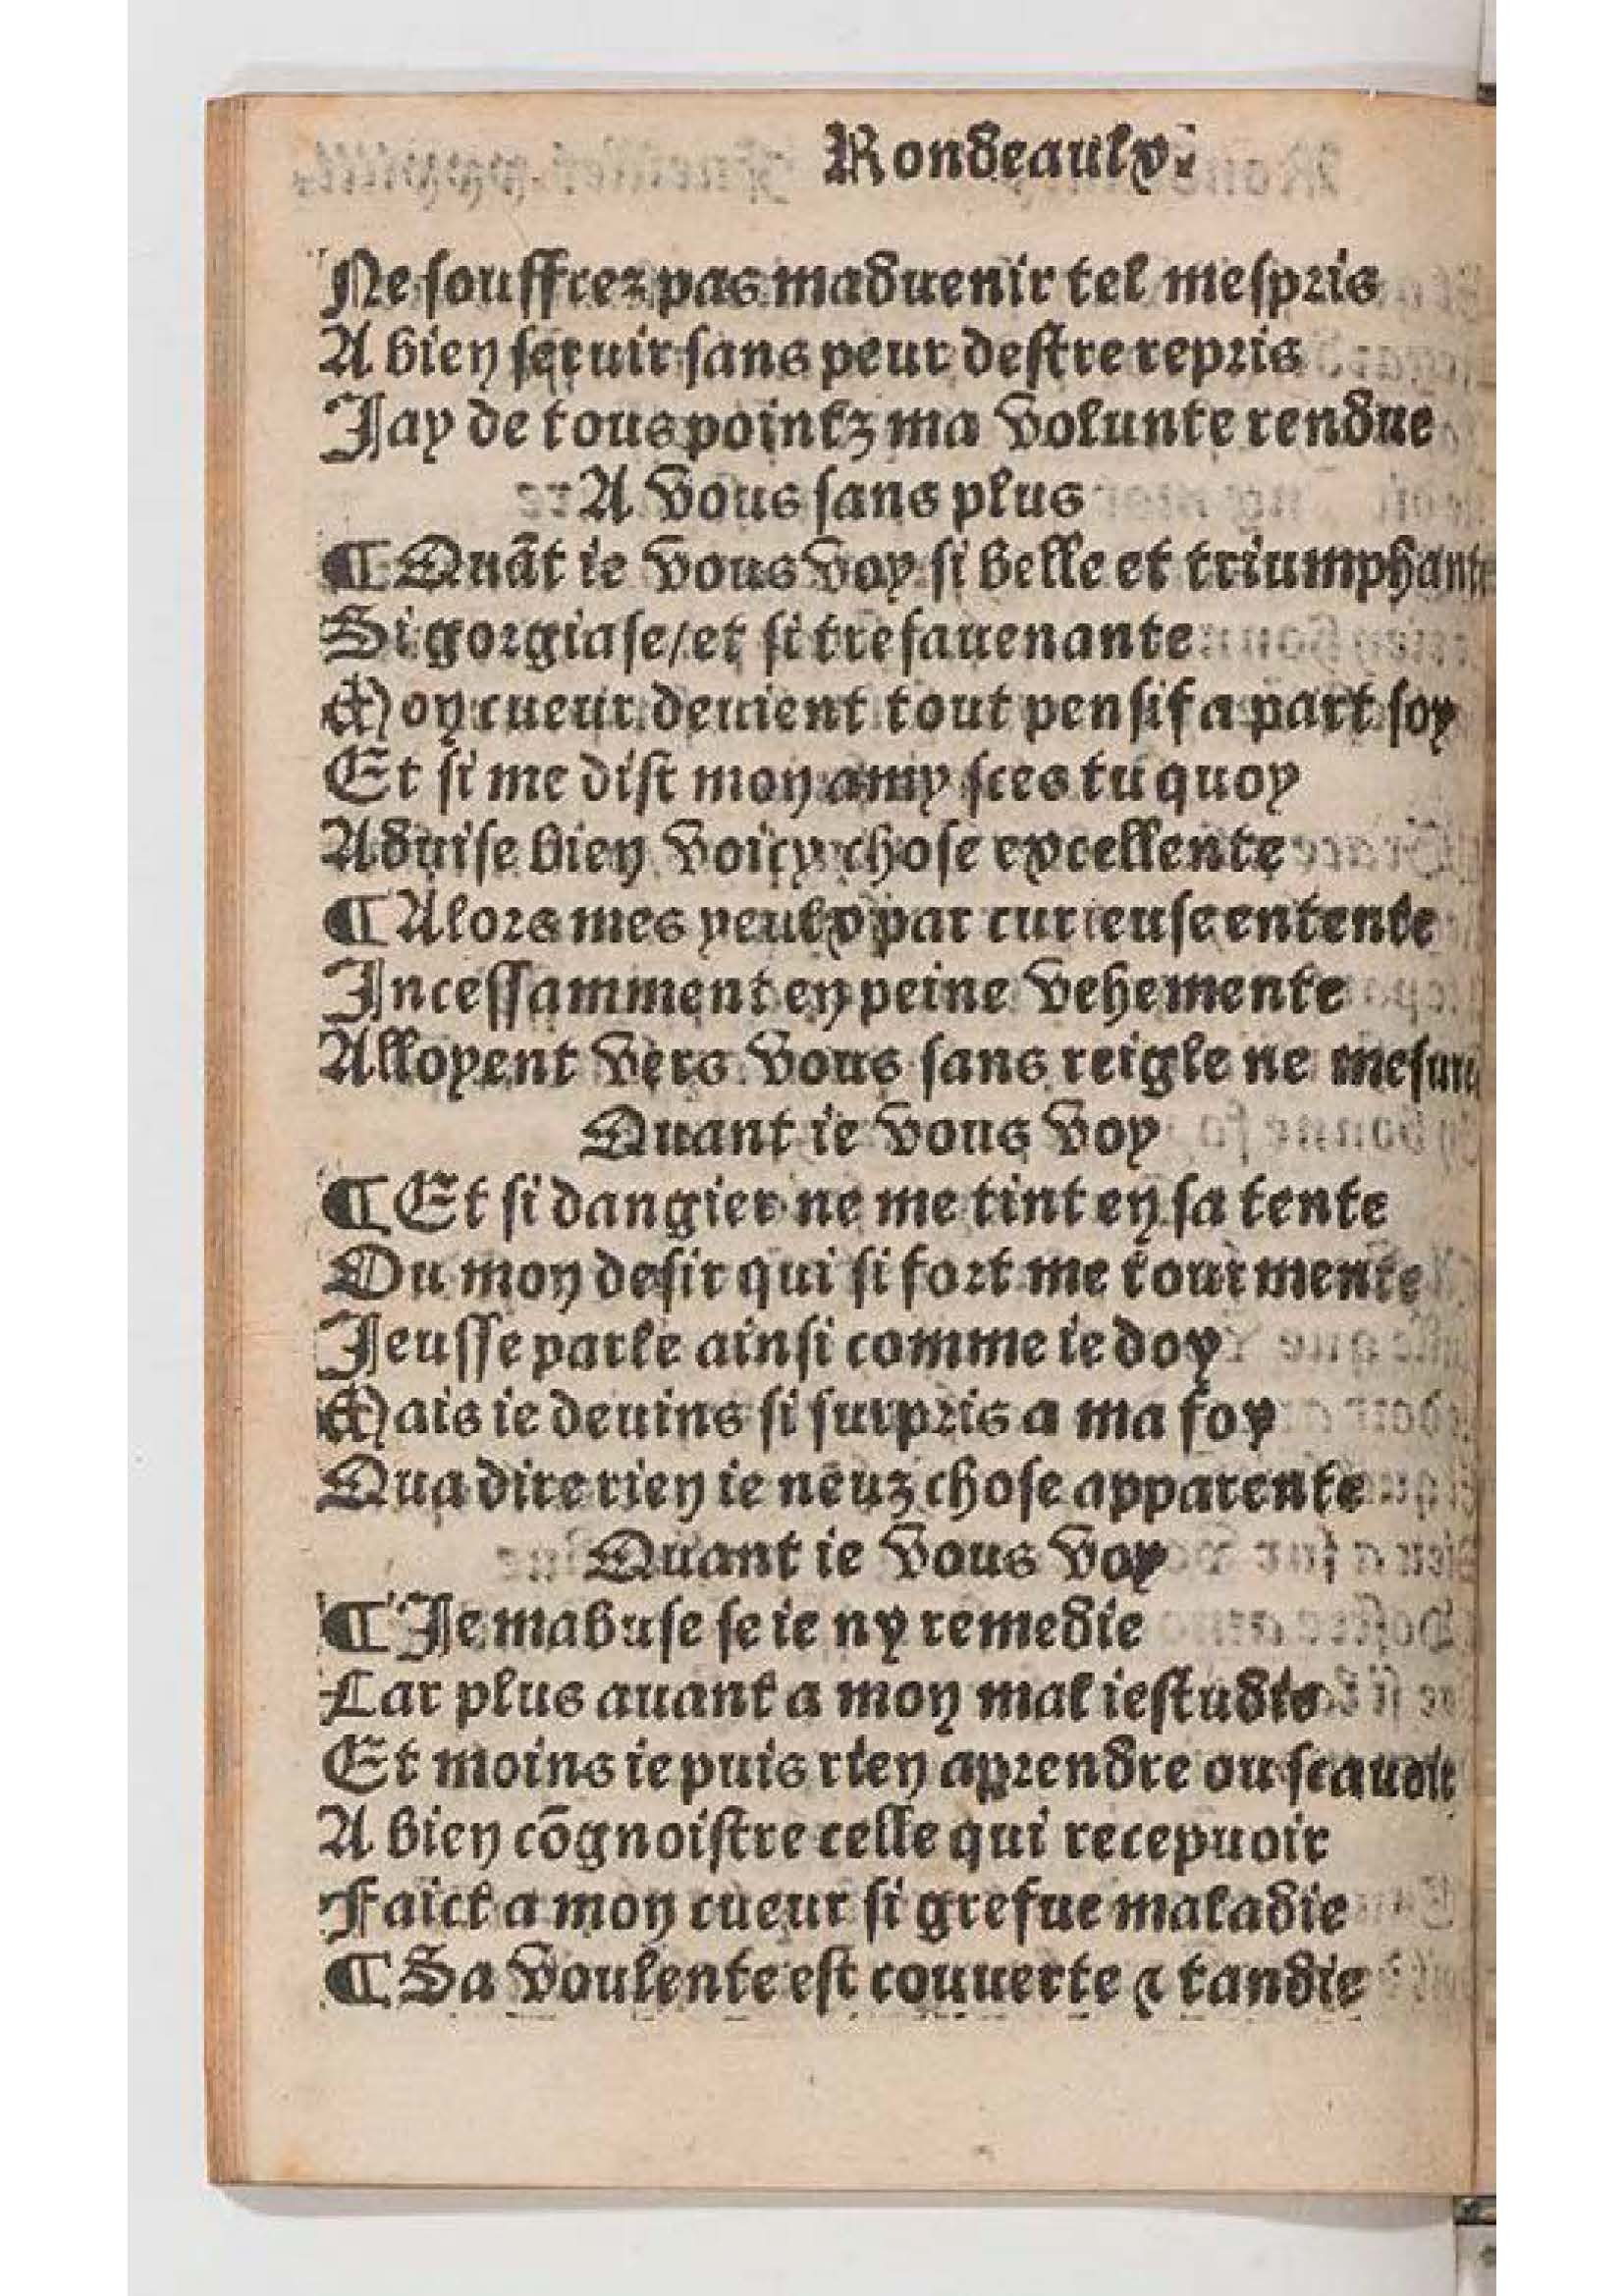 Rondeaulx.
Ne souffrez pas maduenir tel mespris
A bien seruir sans peur destre repris
Jay de tous pointz ma volunte rendue
A vous sans plus
¶ Quāt ie vous voy si belle et triumphante
Si gorgiase / et si tresauenante
Mon cueur deuient tout pensif a part soy
Et si me dist mon amy sces tu quoy
Aduise bien voicy chose excellente
¶ Alors mes yeulx par curieuse entente
Incessamment en peine vehemente
Alloyent vers vous sans reigle ne mesure
Quant ie vous voy
¶ Et si dangier ne me tint en sa tente
Ou mon desir qui si fort me tourmente
Jeusse parle ainsi comme ie doy
Mais ie deuins si surpris a ma foy
Qua dire rien ie neuz chose apparente
Quant ie vous voy
¶ Je mabuse se ie ny remedie
Car plus auant a mon mal iestudie
Et moins ie puis rien aprendre ou scauoir
A bien cōgnoistre celle qui recepuoir
Faict a mon cueur si grefue maladie
¶ Sa voulente est couuerte ⁊ tandie